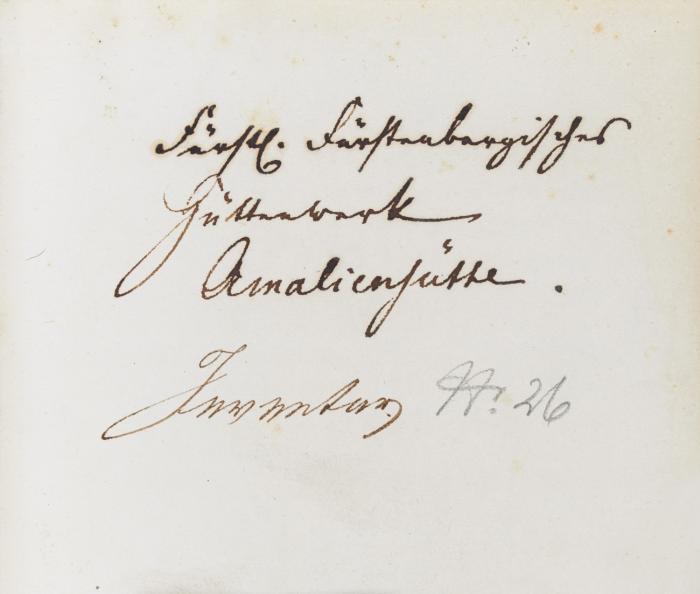 Fürstl. Fürstenbergisches
Hüttenwerk
Amalienhütte.
Inventar Nr. 26